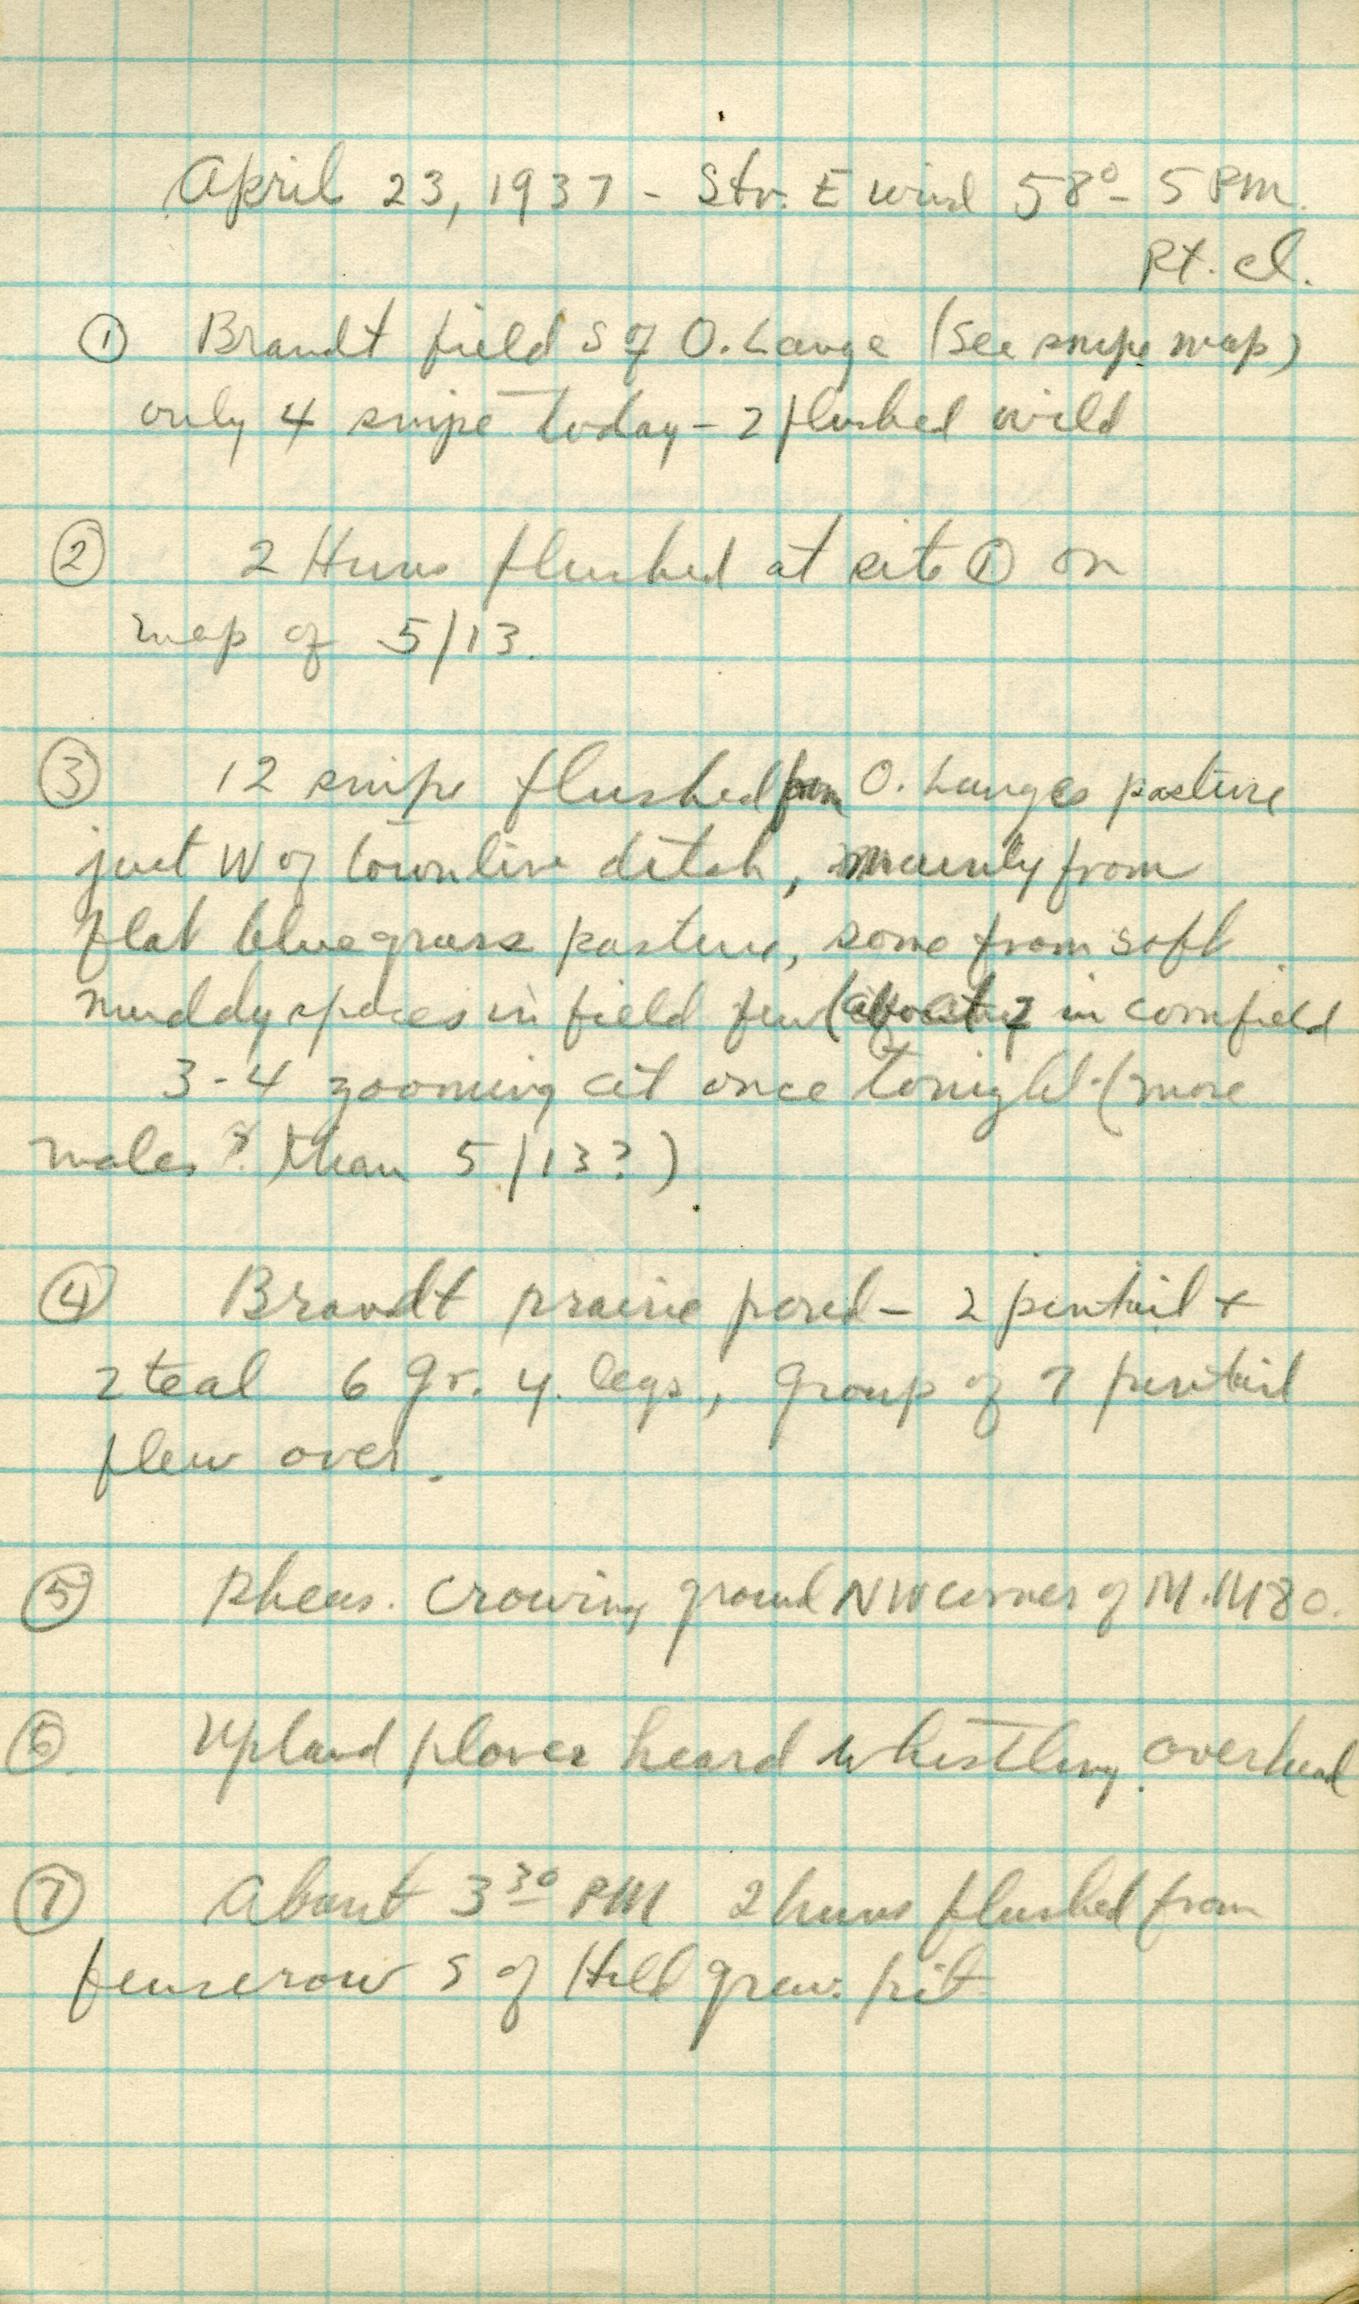 April 23, 1937 - Str. E wind 58° - 5 PM.
Pt. cl.
① Brandt field S of O. Lange (see snipe map)
only 4 snipe today - 2 flushed wild
② 2 Huns flushed at site ① on
map of 5/13.
③ 12 snipe flushed from O. Langes pasture
just W of townline ditch, mainly from
flat bluegrass pasture, some from soft
muddy spaces in field few (about 2 in cornfield
3-4 zooming at once tonight (more
males? than 5/13?)
④ Brandt prairie pond - 2 pintail +
2 teal 6 Gr. y. legs, group of 7 pintail
flew over.
⑤ Pheas. crowing ground NW corner of M. M 80.
⑥ Upland plover heard whistling overhead
⑦ About 3 30 PM 2 huns flushed from
fencerow S of Hill grav. pit